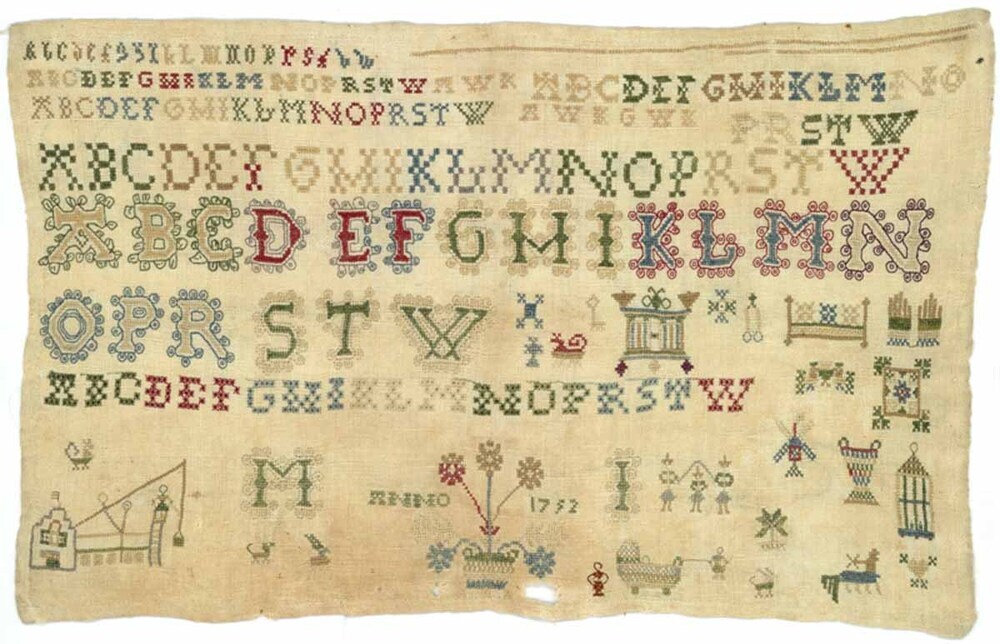 ABCDEFGHIKLMNOPRSTW A W K ABCDEFGHIKLMNO
ABCDEFGHIKLMNOPRSTW A W K G W K
PRSTW
ABCDEF GHIKLMNOPRSTW
ABCDEFGHIKLMN
OPRSTW
ABCDEFGHIKLMNOPRSTW
M I
ANNO 1752